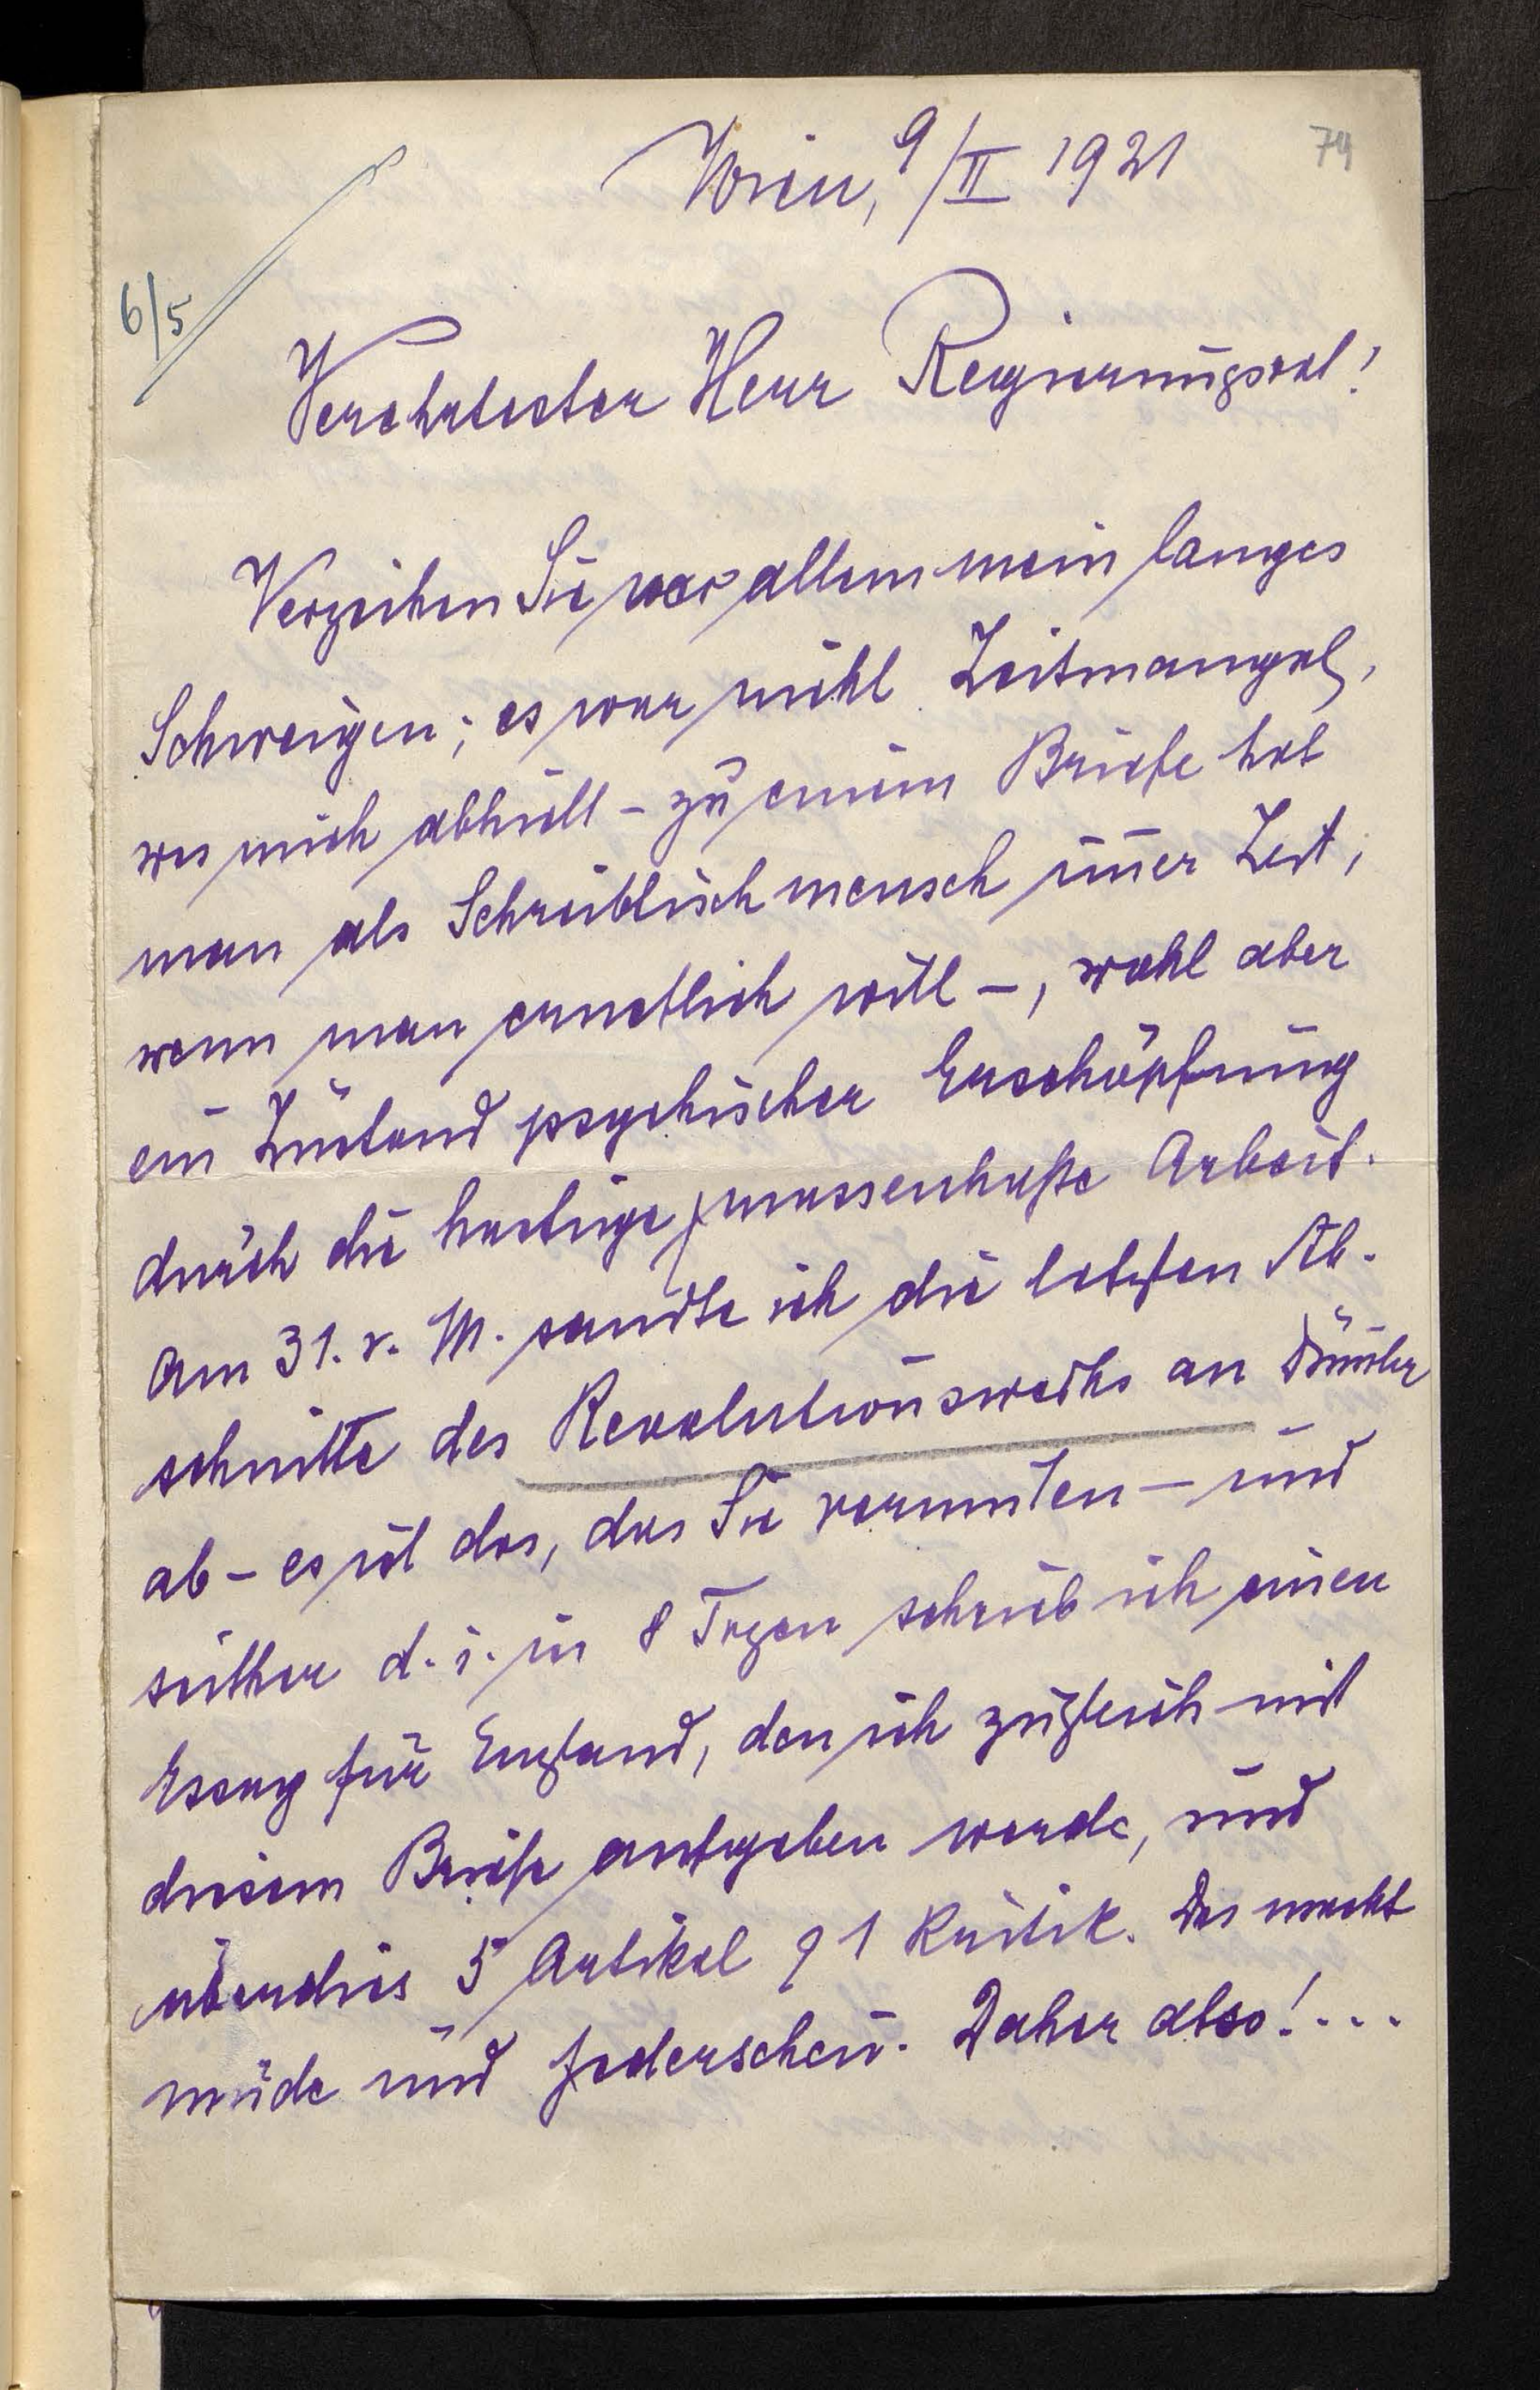 74
Wien, 9/II 1921
6/5
Verehrtester Herr Regierungsrat!
Verzeihen Sie vor allem mein langes
Schweigen; es war nicht Zeitmangel,
was mich abhielt – zu einem Briefe hat
man als Schreibtischmensch im̅er Zeit,
wenn man ernstlich will –, wohl aber
ein Zustand psychischer Erschöpfung
durch die hastige, massenhafte Arbeit.
Am 31. v. M. sandte ich die letzten Ab-
schnitte des Revolutionswerks an
ab – es ist das, das Sie vermuten – und
seither d. i. in 8 Tagen schrieb ich einen
Essay für England, den ich zugleich mit
diesem Briefe aufgeben werde, und
überdies 5 Artikel 1 Kritik. Das macht
müde und federscheu. Daher also!....